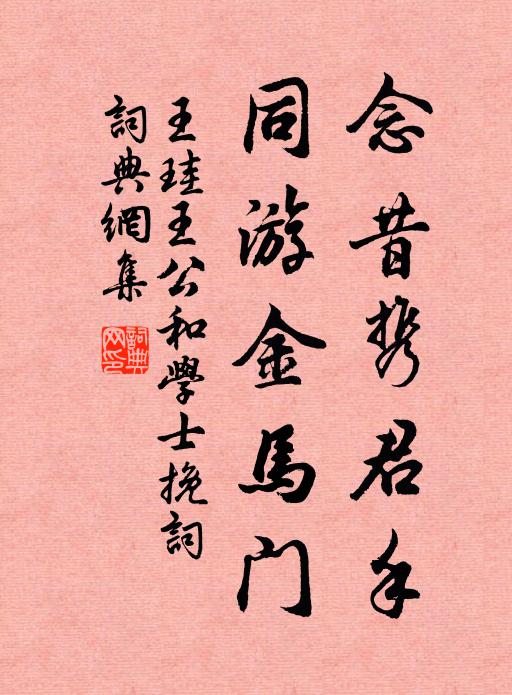 念昔携君手
同游金馬门
王珪王公和學士挽詞
詞典網集
詞典網印